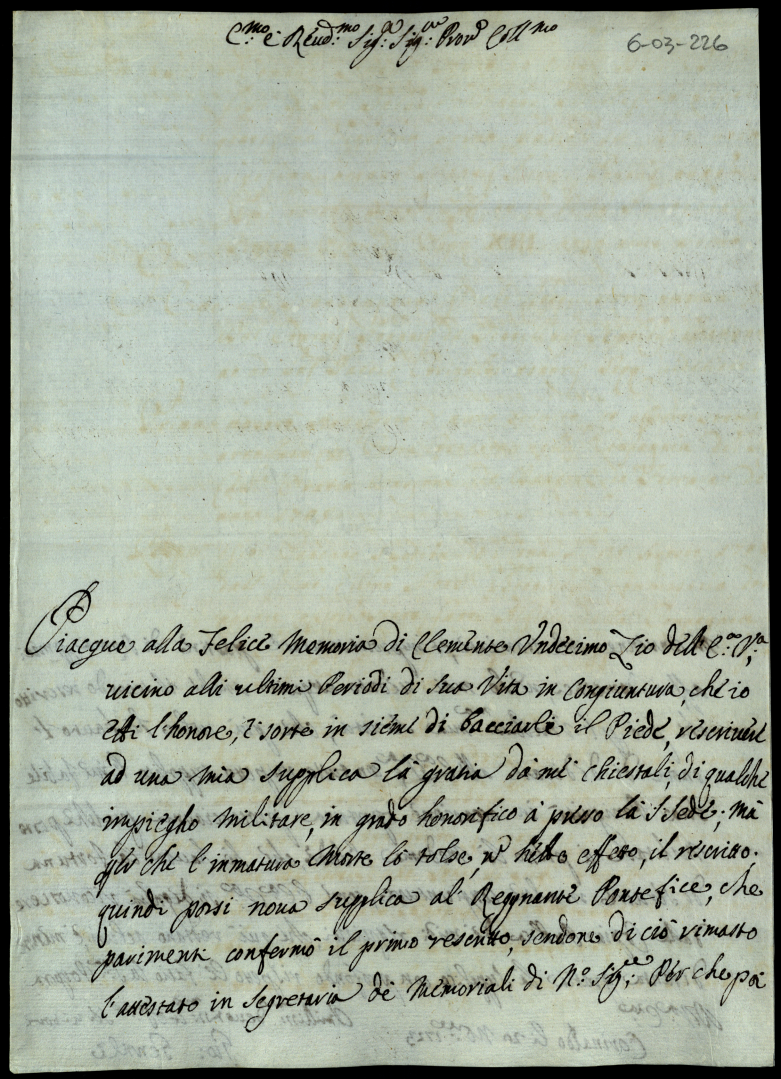 E.mo e Reud.mo Sig.r Sig.r Pron Coll.mo
6-03-226
Piacque alla Felice Memoria di Clemente Vndecimo Zio dell' E.a V.a,
uicino alli ultimi Periodi di sua Vita in Congiuntura, che io
etti l'honore, è sorte in sieme di bacciarli il Piede, rescriuere
ad una mia supplica la gratia da me chiestali, di qualche
impiegho militare, in grado honorifico à presso la S Sede; mà
per che l'inmatura Morte lo tolse, n' hebbe effetto, il rescritto.
quindi porsi noua supplica al' Regnante Pontefice, che
parimenti confermò il primo rescritto, sendone di ciò rimasto
l'attestato in segretaria de Memoriali di N.o Sig.re; Per che poi